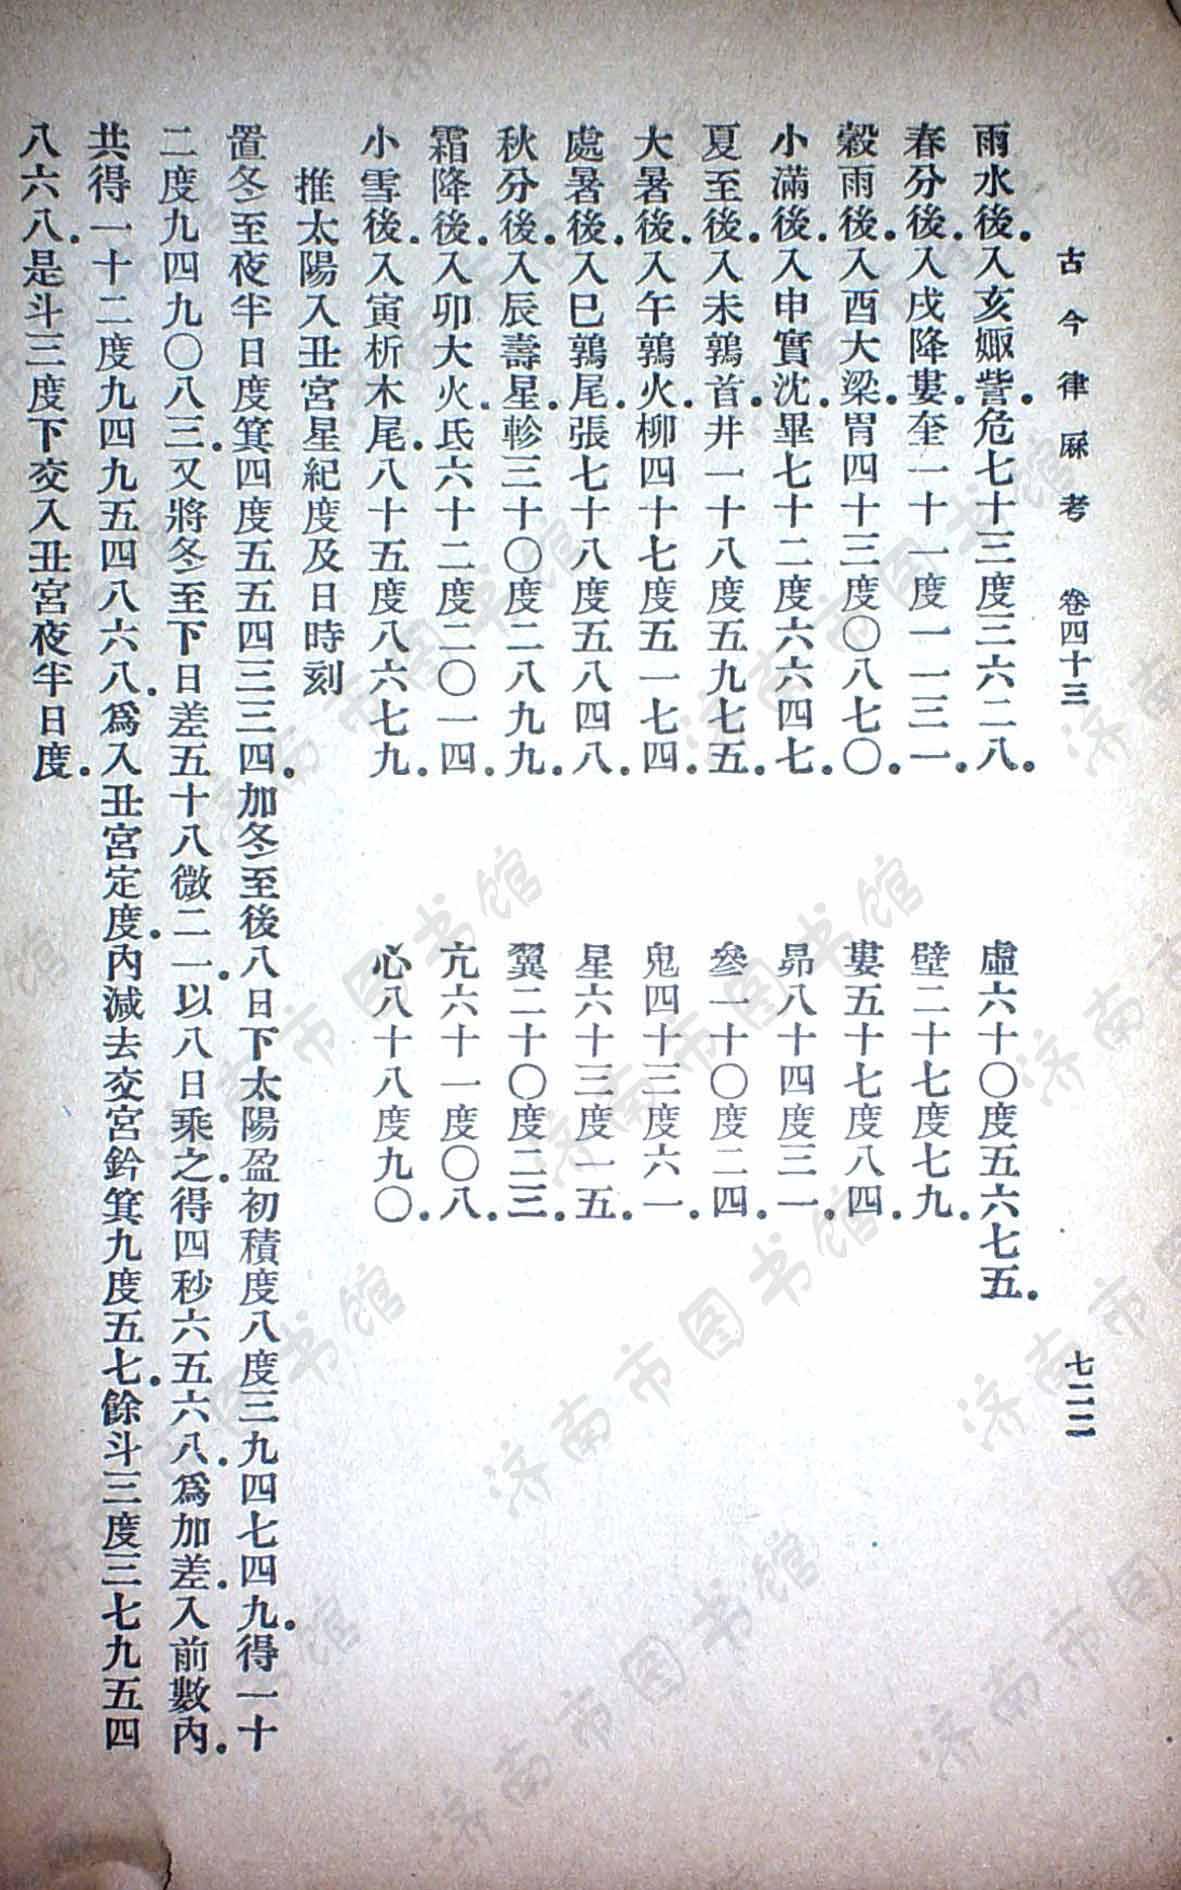 古今律厤考　卷四十三　七二二
雨水後．入亥娵訾．危七十三度三六二八．　虛六十〇度五六七五．
春分後．入戌降婁．奎一十一度一一三一．　壁二十七度七九．
穀雨後．入酉大梁．胃四十三度〇八七〇．　婁五十七度八四．
小滿後．入申實沈．畢七十二度六六四七．　昴八十四度三一．
夏至後．入未鶉首．井一十八度五九七五．　參一十〇度二四．
大暑後．入午鶉火．柳四十七度五一七四．　鬼四十三度六一．
處暑後．入巳鶉尾．張七十八度五八四八．　星六十三度一五．
秋分後．入辰壽星．軫三十〇度二八九九．　翼二十〇度二三．
霜降後．入卯大火．氐六十二度二〇一四．　亢六十一度〇八．
小雪後．入寅析木．尾八十五度八六七九．　心八十八度九〇．
推太陽入丑宮星紀度及日時刻
置冬至夜半日度箕四度五五四三三四．加冬至後八日下太陽盈初積度八度三九四七四九．得一十
二度九四九〇八三．又將冬至下日差五十八微二一．以八日乘之．得四秒六五六八．爲加差．入前數內．
共得一十二度九四九五四八六八．爲入丑宮定度．內減去交宮鈐箕九度五七．餘斗三度三七九五四
八六八．是斗三度下交入丑宮夜半日度．
济南市图书馆